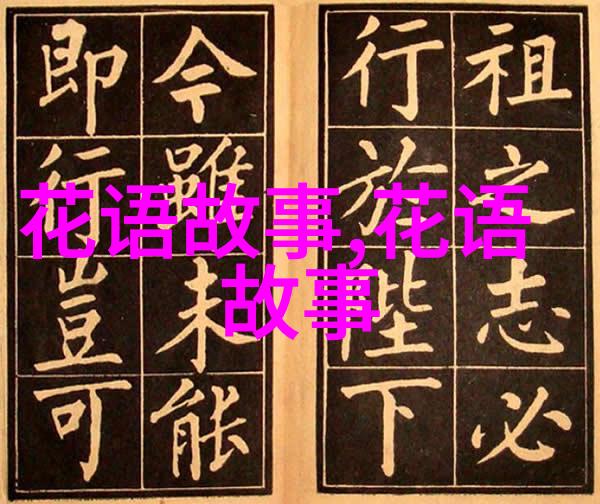 祖之志必
行於陛下
今雖未能
即行豈可
花语故事,花语
故事